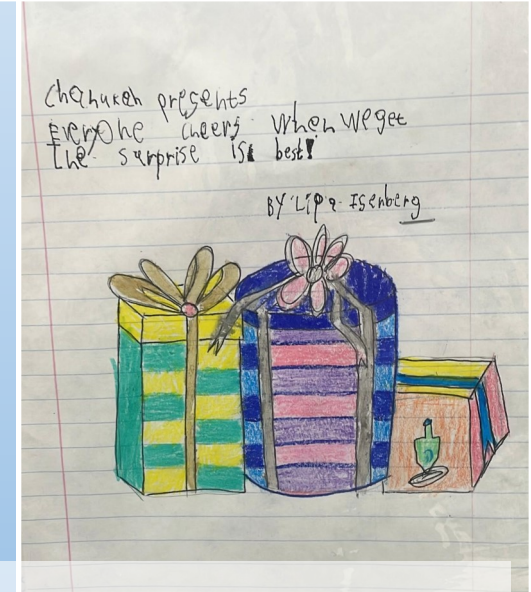 Chanukah presents
Everyone cheers when we get
the surprise is best!
BY Lipa Isenberg